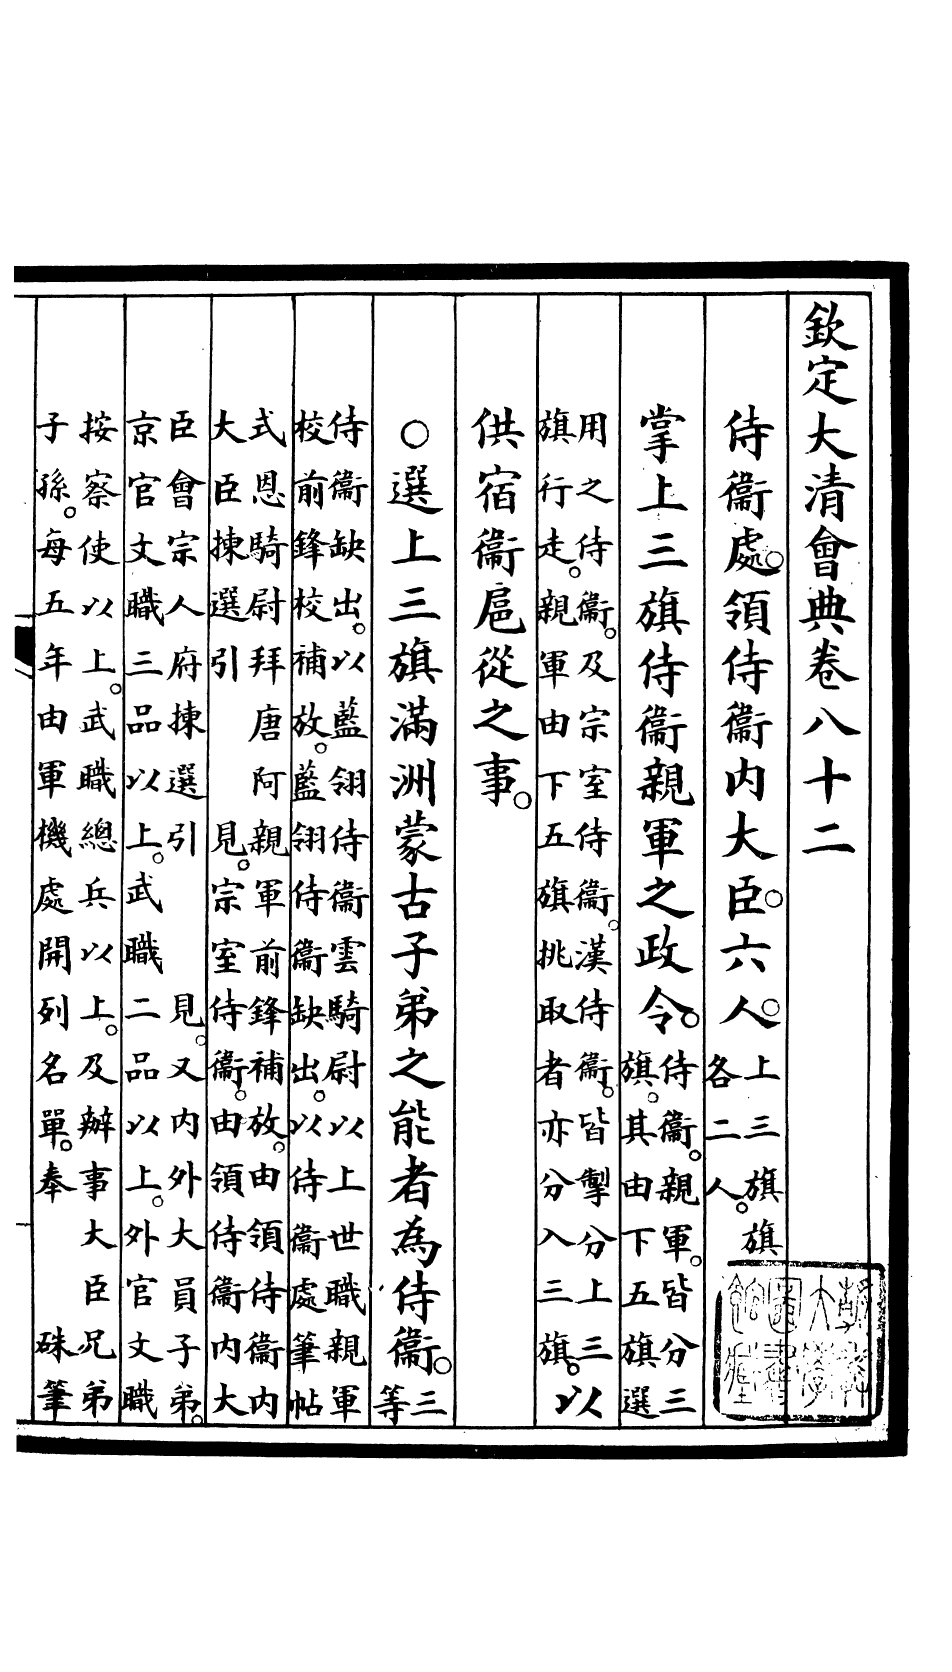 欽定大清會典卷八十二
侍衞處。領侍衞内大臣。六人。上三旗旗
各二人。
掌上三旗侍衞親軍之政令。侍衞。親軍。皆分三
旗。其由下五旗選
用之侍衞。及宗室侍衞。漢侍衞。皆掣分上三
旗行走。親軍由下五旗挑取者亦分入三旗。以
供宿衞扈從之事。
○選上三旗滿洲蒙古子弟之能者為侍衞。三
等
侍衞缺出。以藍翎侍衞雲騎尉以上世職親軍
校前鋒校補放。藍翎侍衞缺出。以侍衞處筆帖
式恩騎尉拜唐阿親軍前鋒補放。由領侍衞内
大臣揀選引 見。宗室侍衞。由領侍衞内大
臣會宗人府揀選引 見。又内外大員子弟。
京官文職三品以上。武職二品以上。外官文職
按察使以上。武職總兵以上。及辦事大臣兄弟
子孫。每五年由軍機處開列名單。奉 硃筆